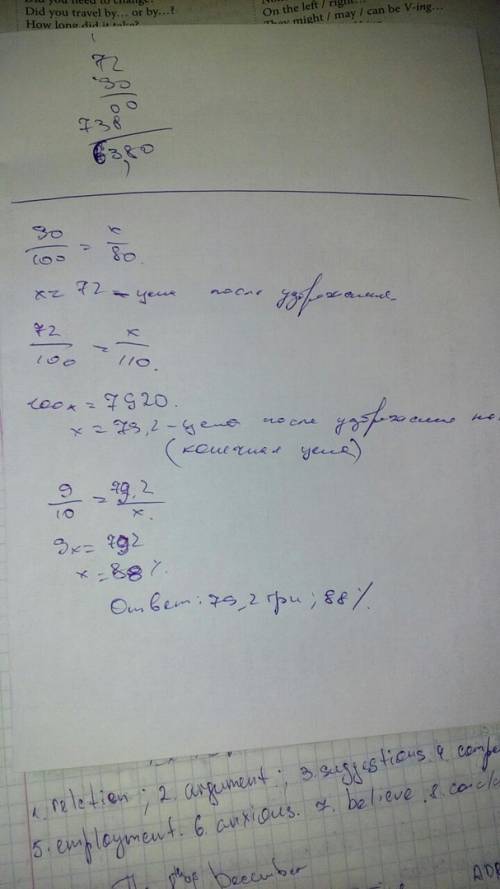 Did you need to change?
Did you travel by... or by...?
How long did it take?
On the left / right...
They might / may / can be V-ing...
72
30
00
738
6380
90/100 = x/80.
x = 72 - цена после
72/100 = x/110.
100x = 7920.
x = 79,2 - цена после
(конечная цена)
9/10 = 79,2/x.
9x = 792
x = 88%.
Ответ: 79,2 грн; 88%.
1. reletion; 2. argument; 3. suggestions. 4. compe
5. employment. 6. anxious. 7. believe. 8. concl
December